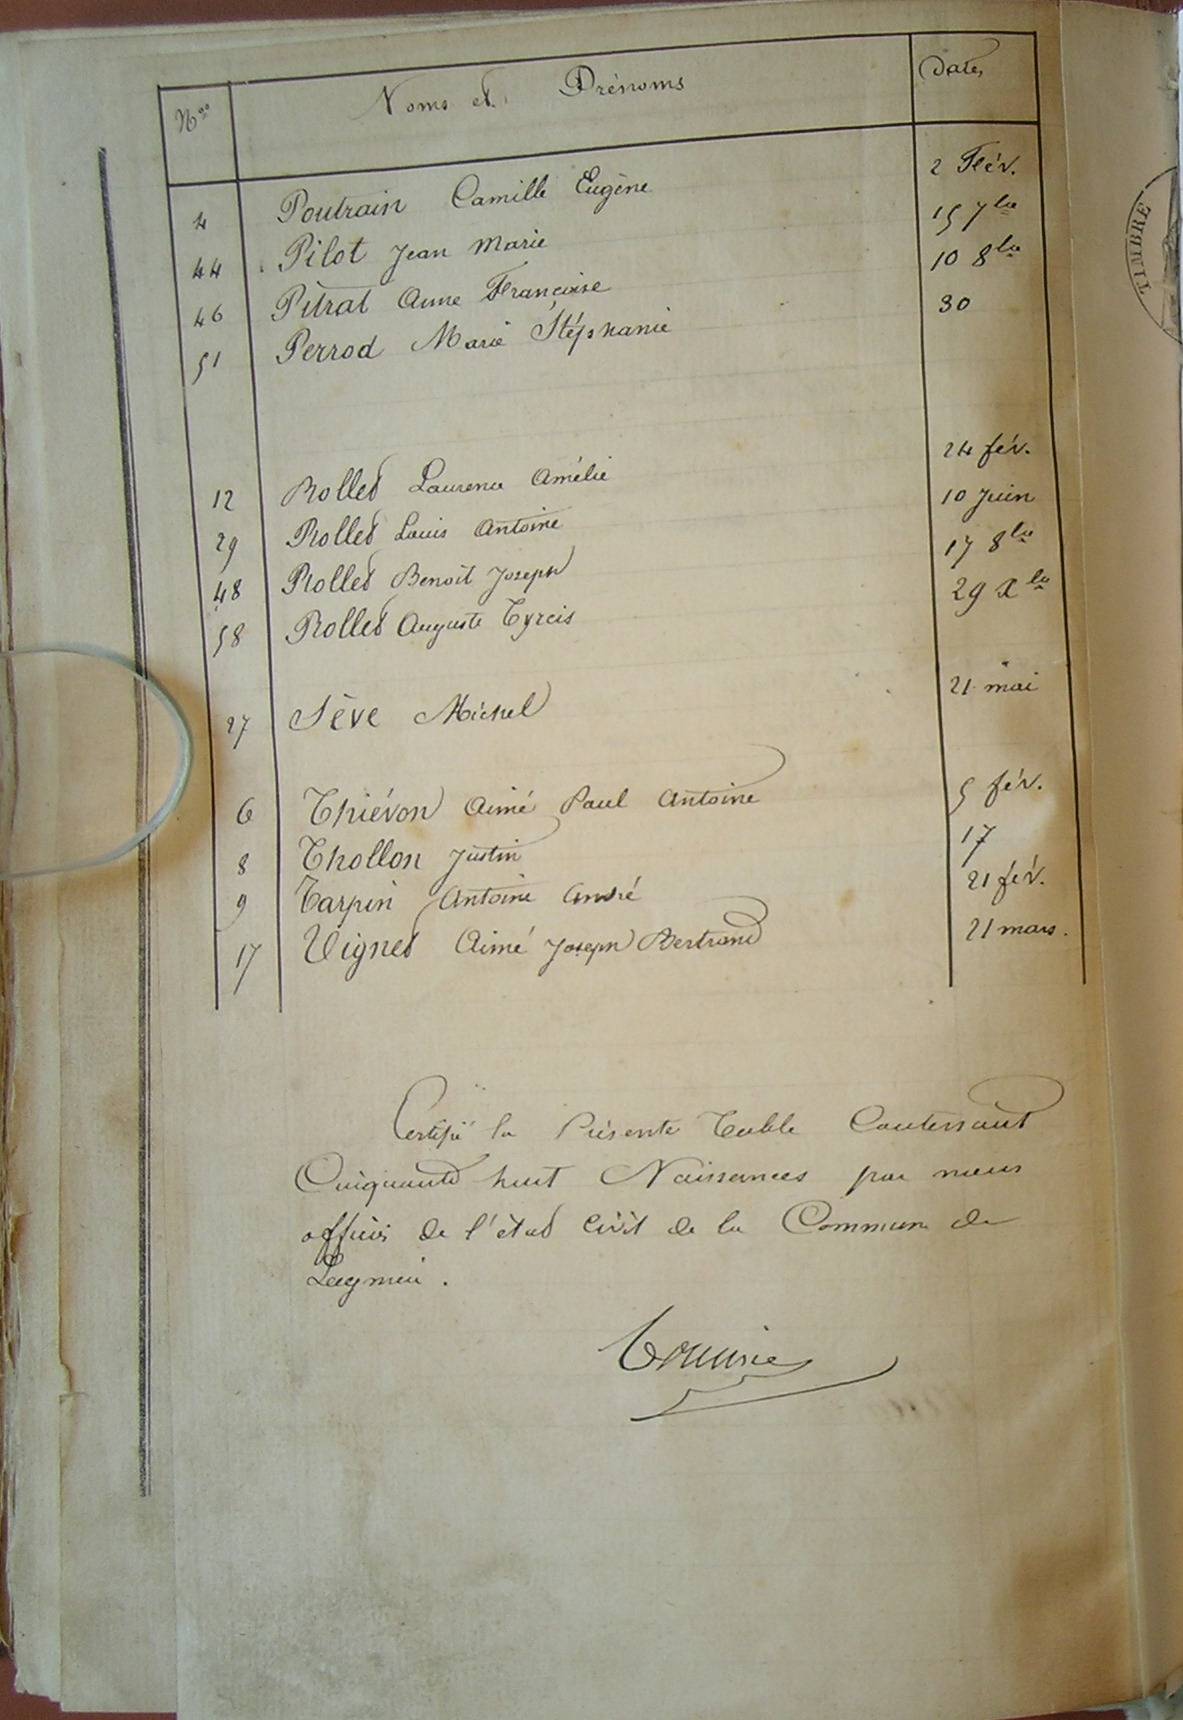 Nos Noms et Prénoms Dates
4 Poutrain Camille Eugène 2 Fév.
44 Pilot Jean Marie 15 7bre
46 Pitrat Anne Françoise 10 8bre
51 Perrod Marie Stéphanie 30
12 Rolled Laurence Amélie 24 fév.
29 Rolled Louis Antoine 10 Juin
48 Rolled Benoit Joseph 17 8bre
58 Rolled Auguste Tyrcis 29 Xbre
27 Sève Michel 21 mai
6 Thiévon Aimé Paul Antoine 5 fév.
8 Thollon Justin 17
9 Tarpin Antoine André 21 fév.
17 Vigned Aimé Joseph Bertrand 21 mars.
Certifié la Présente Table Contenant
Cinquante huit Naissances par nous
officier de l'état Civil de la Commune de
TIMBRE